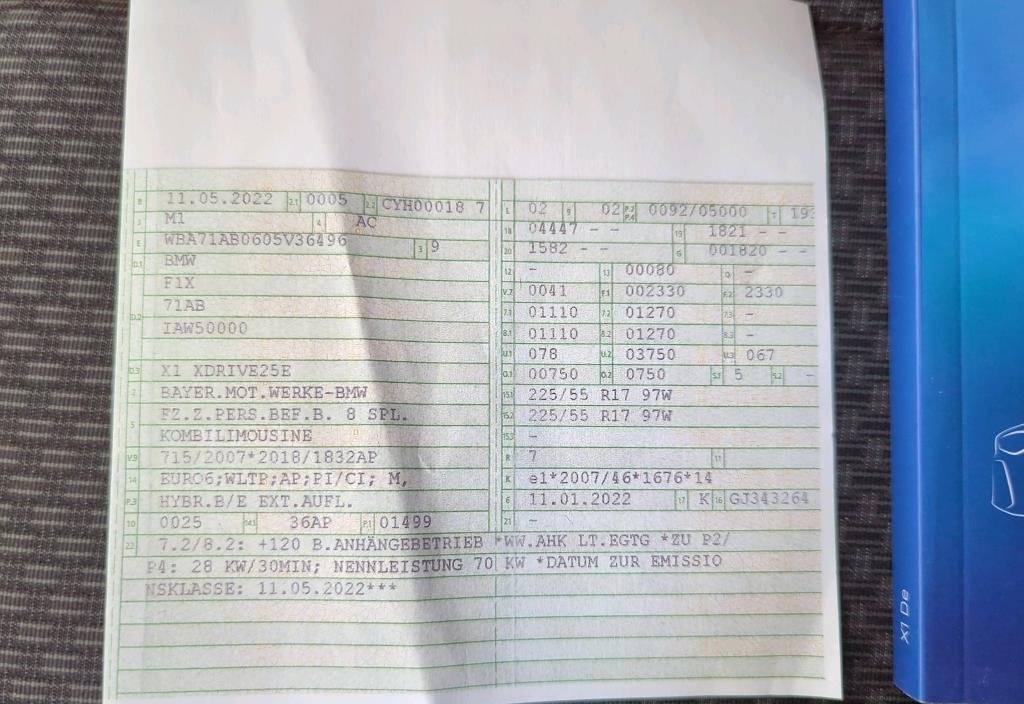 B 11.05.2022 2.1 0005 2.2 CYH00018 7
J M1 4 AC
E WBA71AB0605V36496 3 9
D.1 BMW
F1X
D.2 71AB
IAW50000
D.3 X1 XDRIVE25E
2 BAYER.MOT.WERKE-BMW
5 FZ.Z.PERS.BEF.B. 8 SPL.
KOMBILIMOUSINE
V.9 715/2007*2018/1832AP
14 EURO6;WLTP;AP;PI/CI; M,
P.3 HYBR.B/E EXT.AUFL.
10 0025 14.1 36AP P.1 01499
L 02 9 02 P.2 P.4 0092/05000 T 193
18 04447 - - 19 1821 - -
20 1582 - - G 001820 - -
12 - 13 00080 Q -
V.7 0041 F.1 002330 F.2 2330
7.1 01110 7.2 01270 7.3 -
8.1 01110 8.2 01270 8.3 -
U.1 078 U.2 03750 U.3 067
O.1 00750 O.2 0750 S.1 5 S.2 -
15.1 225/55 R17 97W
15.2 225/55 R17 97W
15.3 -
R 7 11
K e1*2007/46*1676*14
6 11.01.2022 17 K 16 GJ343264
21 -
22 7.2/8.2: +120 B.ANHÄNGEBETRIEB *WW.AHK LT.EGTG *ZU P2/
P4: 28 KW/30MIN; NENNLEISTUNG 70 KW *DATUM ZUR EMISSIO
NSKLASSE: 11.05.2022***
X1 De